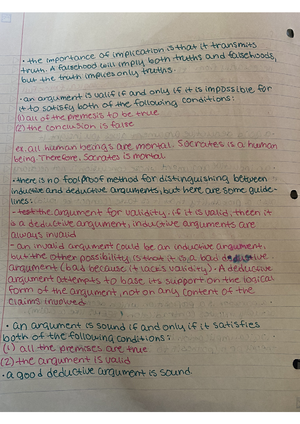 • the importance of implication is that it transmits
truth. A falsehood will imply both truths and falsehoods,
but the truth implies only truths.
• an argument is valif if and only if it is impossible for
it to satisfy both of the following conditions:
(1) all of the premesis to be true
(2) the conclusion is false
ex. all human beings are mortal. Socrates is a human
being. Therefore, Socrates is mortal
• there is no foolproof method for distinguishing between
inductive and deductive arguments, but here are some guide-
lines:
- test the argument for validity. if it is valid, then it
is a deductive argument, inductive arguments are
always invalid
- an invalid argument could be an inductive argument,
but the other possibility is that it is a bad deductive
argument (bad because it lacks validity). A deductive
argument attempts to base its support on the logical
form of the argument, not on any content of the
claims involved
• an argument is sound if and only if it satisfies
both of the following conditions:
(1) all the premises are true
(2) the argument is valid
• a good deductive argument is sound